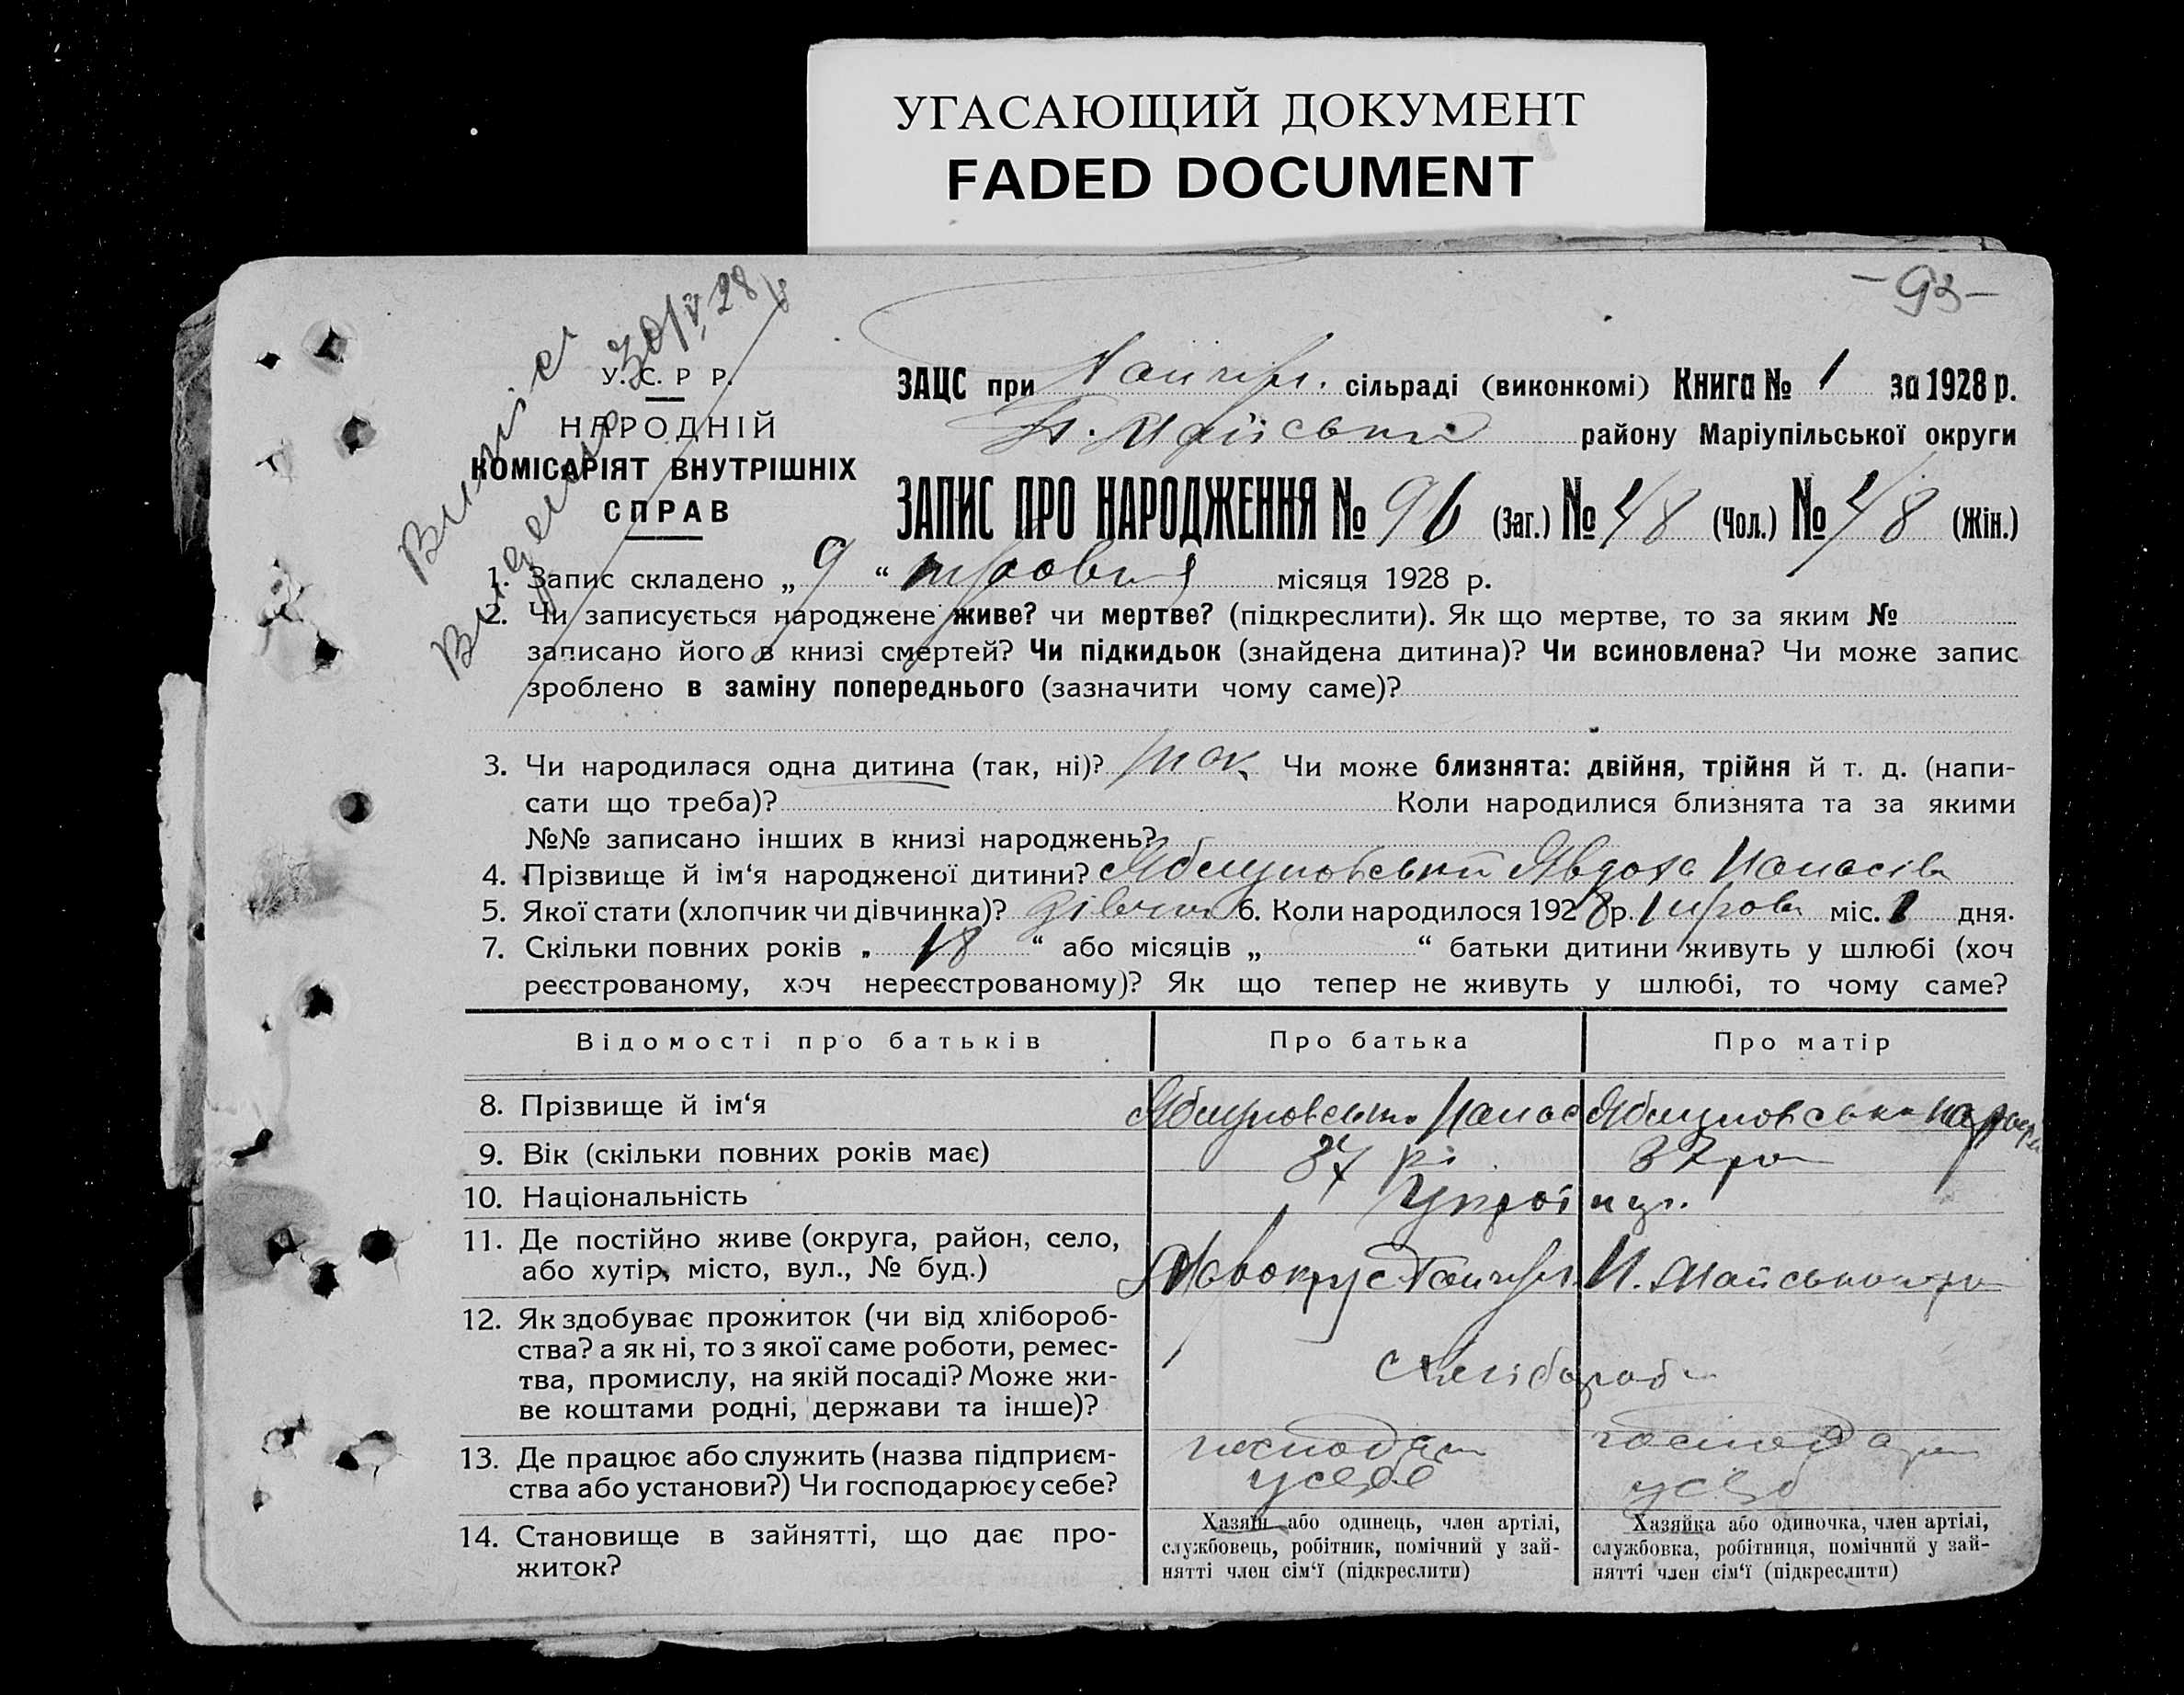 УГАСАЮЩИЙ ДОКУМЕНТ
FADED DOCUMENT
-93-
30/V 28
Виписг
У. С. Р Р.
НАРОДНІЙ
КОМІСАРІЯТ ВНУТРІШНІХ
СПРАВ
ЗАЦС при сільраді (виконкомі) Книга № 1 за 1928 р.
району Маріупільської округи
ЗАПИС ПРО НАРОДЖЕННЯ № 96 (Заг.) № 48 (Чол.) № 48 (Жін.)
1. Запис складено „ 9 “ травня місяця 1928 р.
2. Чи записується народжене живе? чи мертве? (підкреслити). Як що мертве, то за яким №
записано його в книзі смертей? Чи підкидьок (знайдена дитина)? Чи всиновлена? Чи може запис
зроблено в заміну попереднього (зазначити чому саме)?
3. Чи народилася одна дитина (так, ні)? так Чи може близнята: двійня, трійня й т. д. (напи-
сати що треба)? Коли народилися близнята та за якими
№№ записано інших в книзі народжень?
4. Прізвище й ім‘я народженої дитини? Явдоха Панасів
5. Якої стати (хлопчик чи дівчинка)? дівчин 6. Коли народилося 1928 р. травн міс. 1 дня.
7. Скільки повних років „ 18 “ або місяців „ “ батьки дитини живуть у шлюбі (хоч
реєстрованому, хоч нереєстрованому)? Як що тепер не живуть у шлюбі, то чому саме?
Відомості про батьків Про батька Про матір
8. Прізвище й ім‘я Панас
9. Вік (скільки повних років має) 37 рі 37 ро
10. Національність Украї нци
11. Де постійно живе (округа, район, село,
або хутір, місто, вул., № буд.)
12. Як здобуває прожиток (чи від хлібороб-
ства? а як ні, то з якої саме роботи, ремес-
тва, промислу, на якій посаді? Може жи-
ве коштами родні, держави та інше)?
13. Де працює або служить (назва підприєм-
ства або установи?) Чи господарює у себе?
господар
у себе
господар
у себ
14. Становище в зайнятті, що дає про-
житок?
Хазяїн або одинець, член артілі,
службовець, робітник, помічний у зай-
нятті член сім‘ї (підкреслити)
Хазяйка або одиночка, член артілі,
службовка, робітниця, помічний у зай-
нятті член сім‘ї (підкреслити)